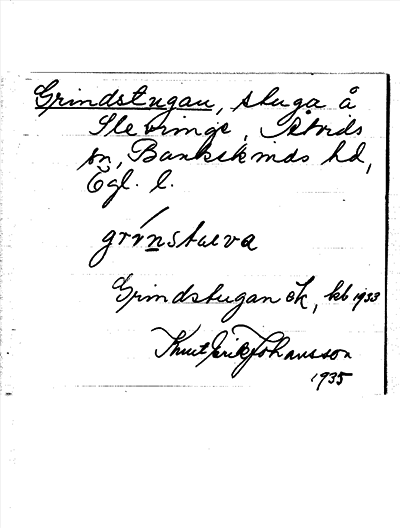 Grindstugan, stuga å
Slevringe, Åtvids
sn, Bankekinds hd,
Ögl. l.
grínstueva
Grindstugan ek, kb 1933
Knut Erik Johansson
1935